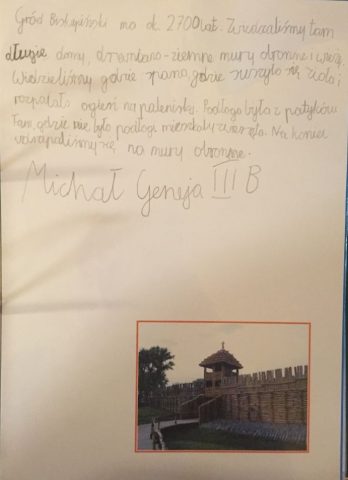 Gród Biskupiński ma ok. 2700 lat. Zwiedzaliśmy tam
długie domy, drewniano-ziemne mury obronne i wieżę.
Widzieliśmy gdzie spano, gdzie suszyło się zioła i
rozpalało ogień na palenisku. Podłoga była z patyków.
Tam, gdzie nie było podłogi mieszkały zwierzęta. Na koniec
wdrapaliśmy się na mury obronne.
Michał Geneja III B